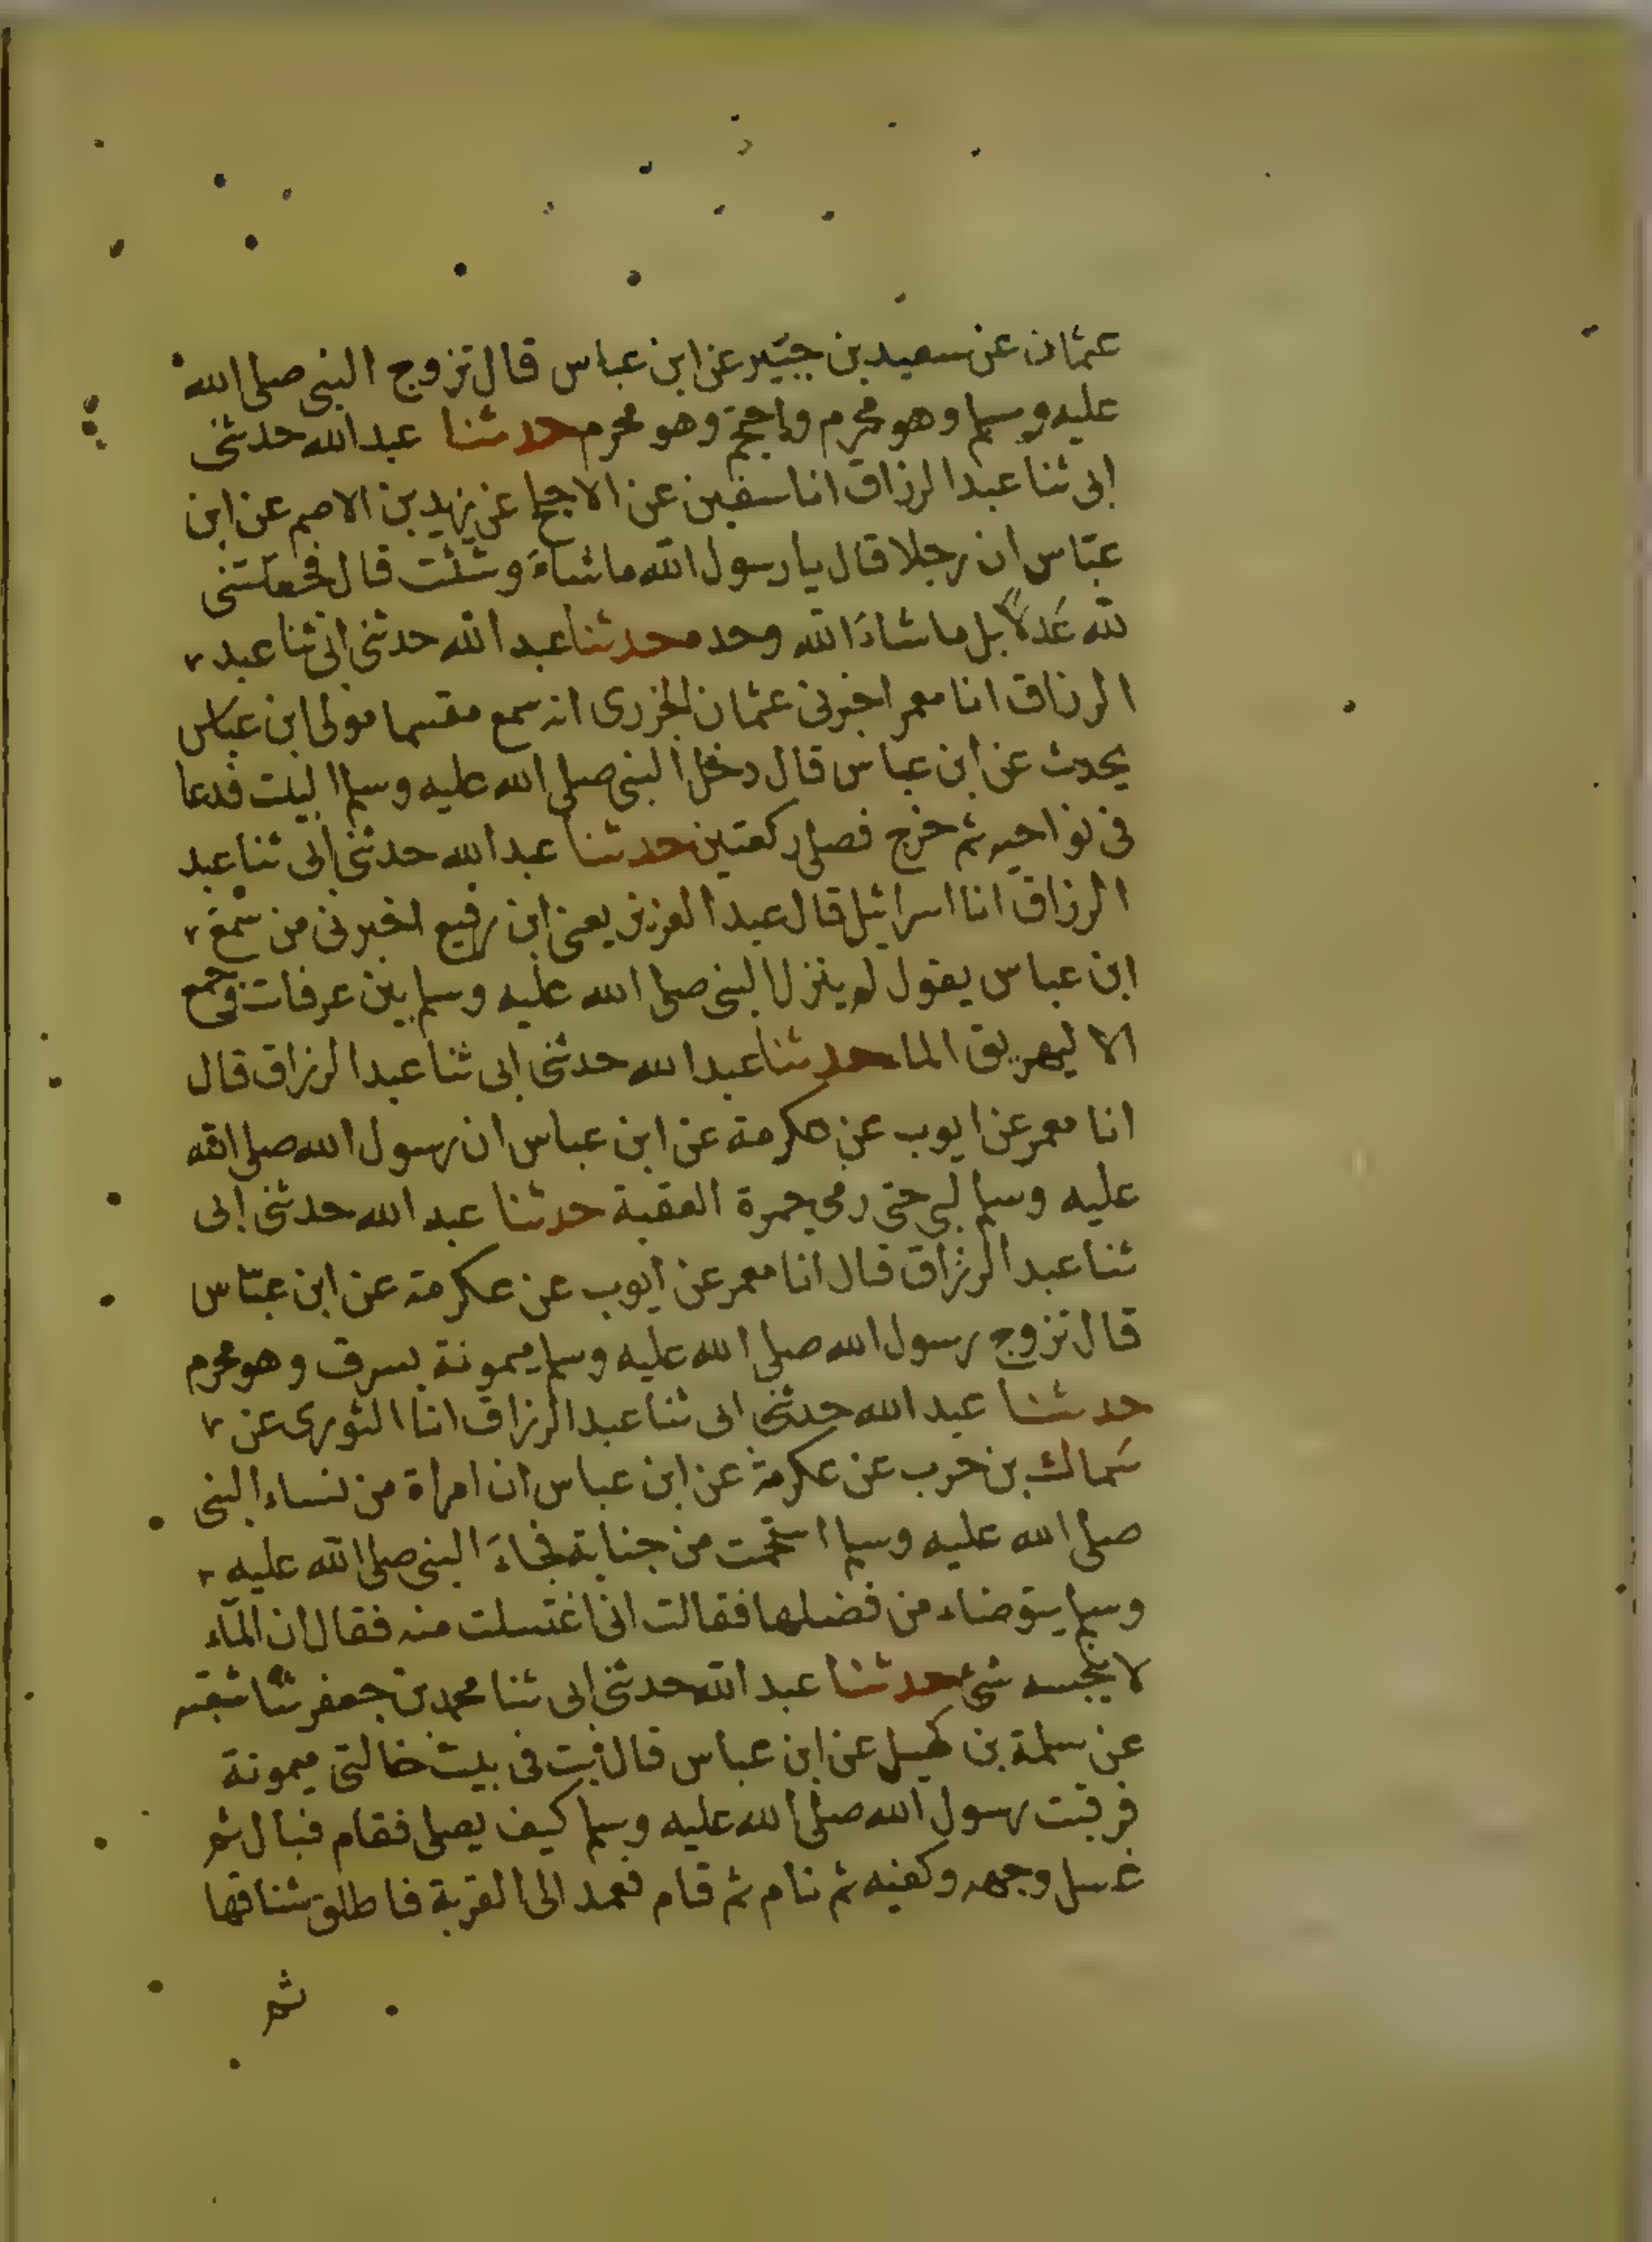 عثمان عن سعيد بن جبير عن ابن عباس قال تزوج النبى صلى الله
عليه وسلم وهو محرم واحتجم وهو محرم حدثنا عبد الله حدثنى
ابى ثنا عبد الرزاق انا سفين عن الاجلح عن يزيد بن الاصم عن ابن
عباس ان رجلا قال يا رسول الله ما شاء وشئت قال فجعلتنى
لله عدلا بل ما شاء الله وحده حدثنا عبد الله حدثنى ابى ثنا عبد
الرزاق انا معمر اخبرنى عثمان الجزرى انه سمع مقسما مولى ابن عباس
يحدث عن ابن عباس قال دخل النبى صلى الله عليه وسلم البيت فدعا
فى نواحيه ثم خرج فصلى ركعتين حدثنا عبد الله حدثنى ابى ثنا عبد
الرزاق انا اسرائيل قال عبد العزيز يعنى ابن رفيع اخبرنى من سمع
ابن عباس يقول لم ينزل النبى صلى الله عليه وسلم بين عرفات وجمع
الا ليهريق الما حدثنا عبد الله حدثنى ابى ثنا عبد الرزاق قال
انا معمر عن ايوب عن عكرمة عن ابن عباس ان رسول الله صلى الله
عليه وسلم لبى حتى رمى جمرة العقبة حدثنا عبد الله حدثنى ابى
ثنا عبد الرزاق قال انا معمر عن ايوب عن عكرمة عن ابن عباس
قال تزوج رسول الله صلى الله عليه وسلم ميمونة بسرف وهو محرم
حدثنا عبد الله حدثنى ابى ثنا عبد الرزاق انا الثورى عن
سماك بن حرب عن عكرمة عن ابن عباس ان امراة من نساء النبى
صلى الله عليه وسلم استحمت من جنابة فجاء النبى صلى الله عليه
وسلم يتوضاء من فضلها فقالت انى اغتسلت منه فقال ان الماء
لا ينجسه شىء حدثنا عبد الله حدثنى ابى ثنا محمد بن جعفر ثنا شعبة
عن سلمة بن كهيل عن ابن عباس قال بت فى بيت خالتى ميمونة
فرقبت رسول الله صلى الله عليه وسلم كيف يصلى فقام فبال ثم
غسل وجهه وكفيه ثم نام ثم قام فعمد الى القربة فاطلق شناقها
ثم